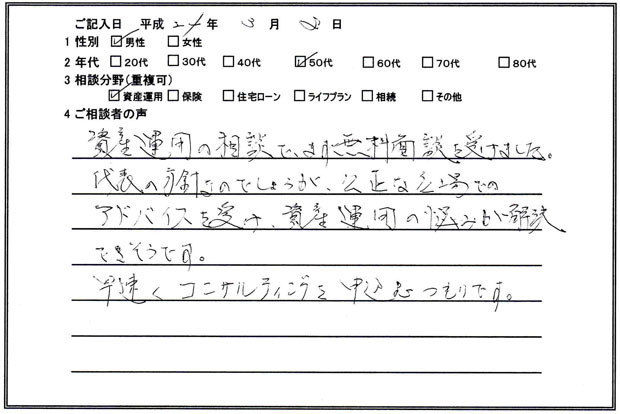 ご記入日 平成 2 年 3 月 日
1 性別 ☑男性 □女性
2 年代 □20代 □30代 □40代 ☑50代 □60代 □70代 □80代
3 相談分野(重複可)
☑資産運用 □保険 □住宅ローン □ライフプラン □相続 □その他
4 ご相談者の声
資産運用の相談で、まず無料面談を受けました。
代表の方針なのでしょうが、公正な立場での
アドバイスを受け、資産運用の悩みが解決
できそうです。
早速くコンサルティングを申込むつもりです。